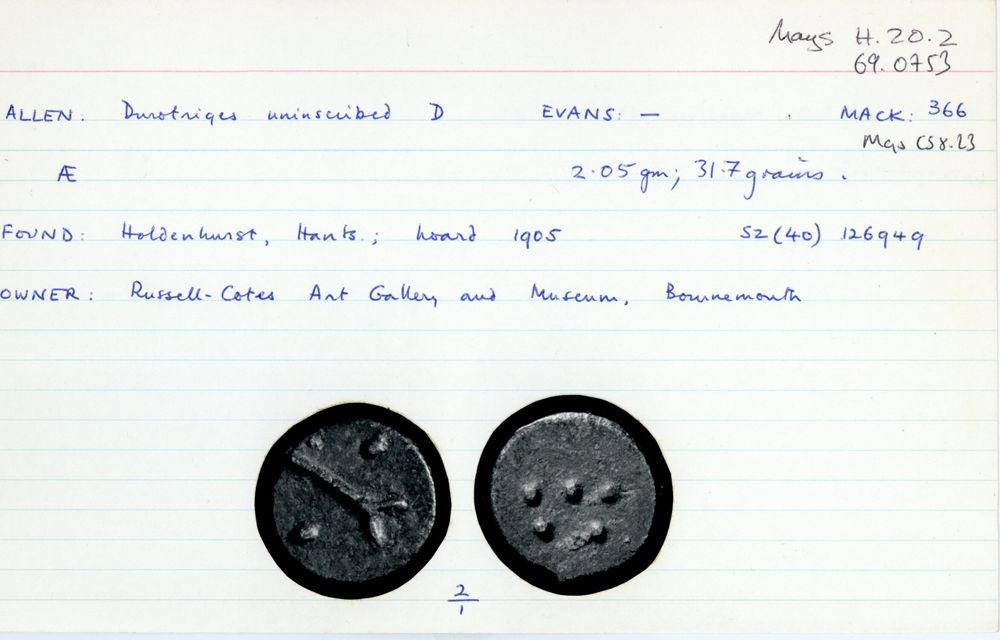 Mays H.20.2
69.0753
ALLEN: Durotriges uninscribed D EVANS: — MACK: 366
Æ 2.05 gm; 31.7 grains.
FOUND: Holdenhurst, Hants.; hoard 1905 SZ (40) 126949
OWNER: Russell-Cotes Art Gallery and Museum, Bournemouth
2/1